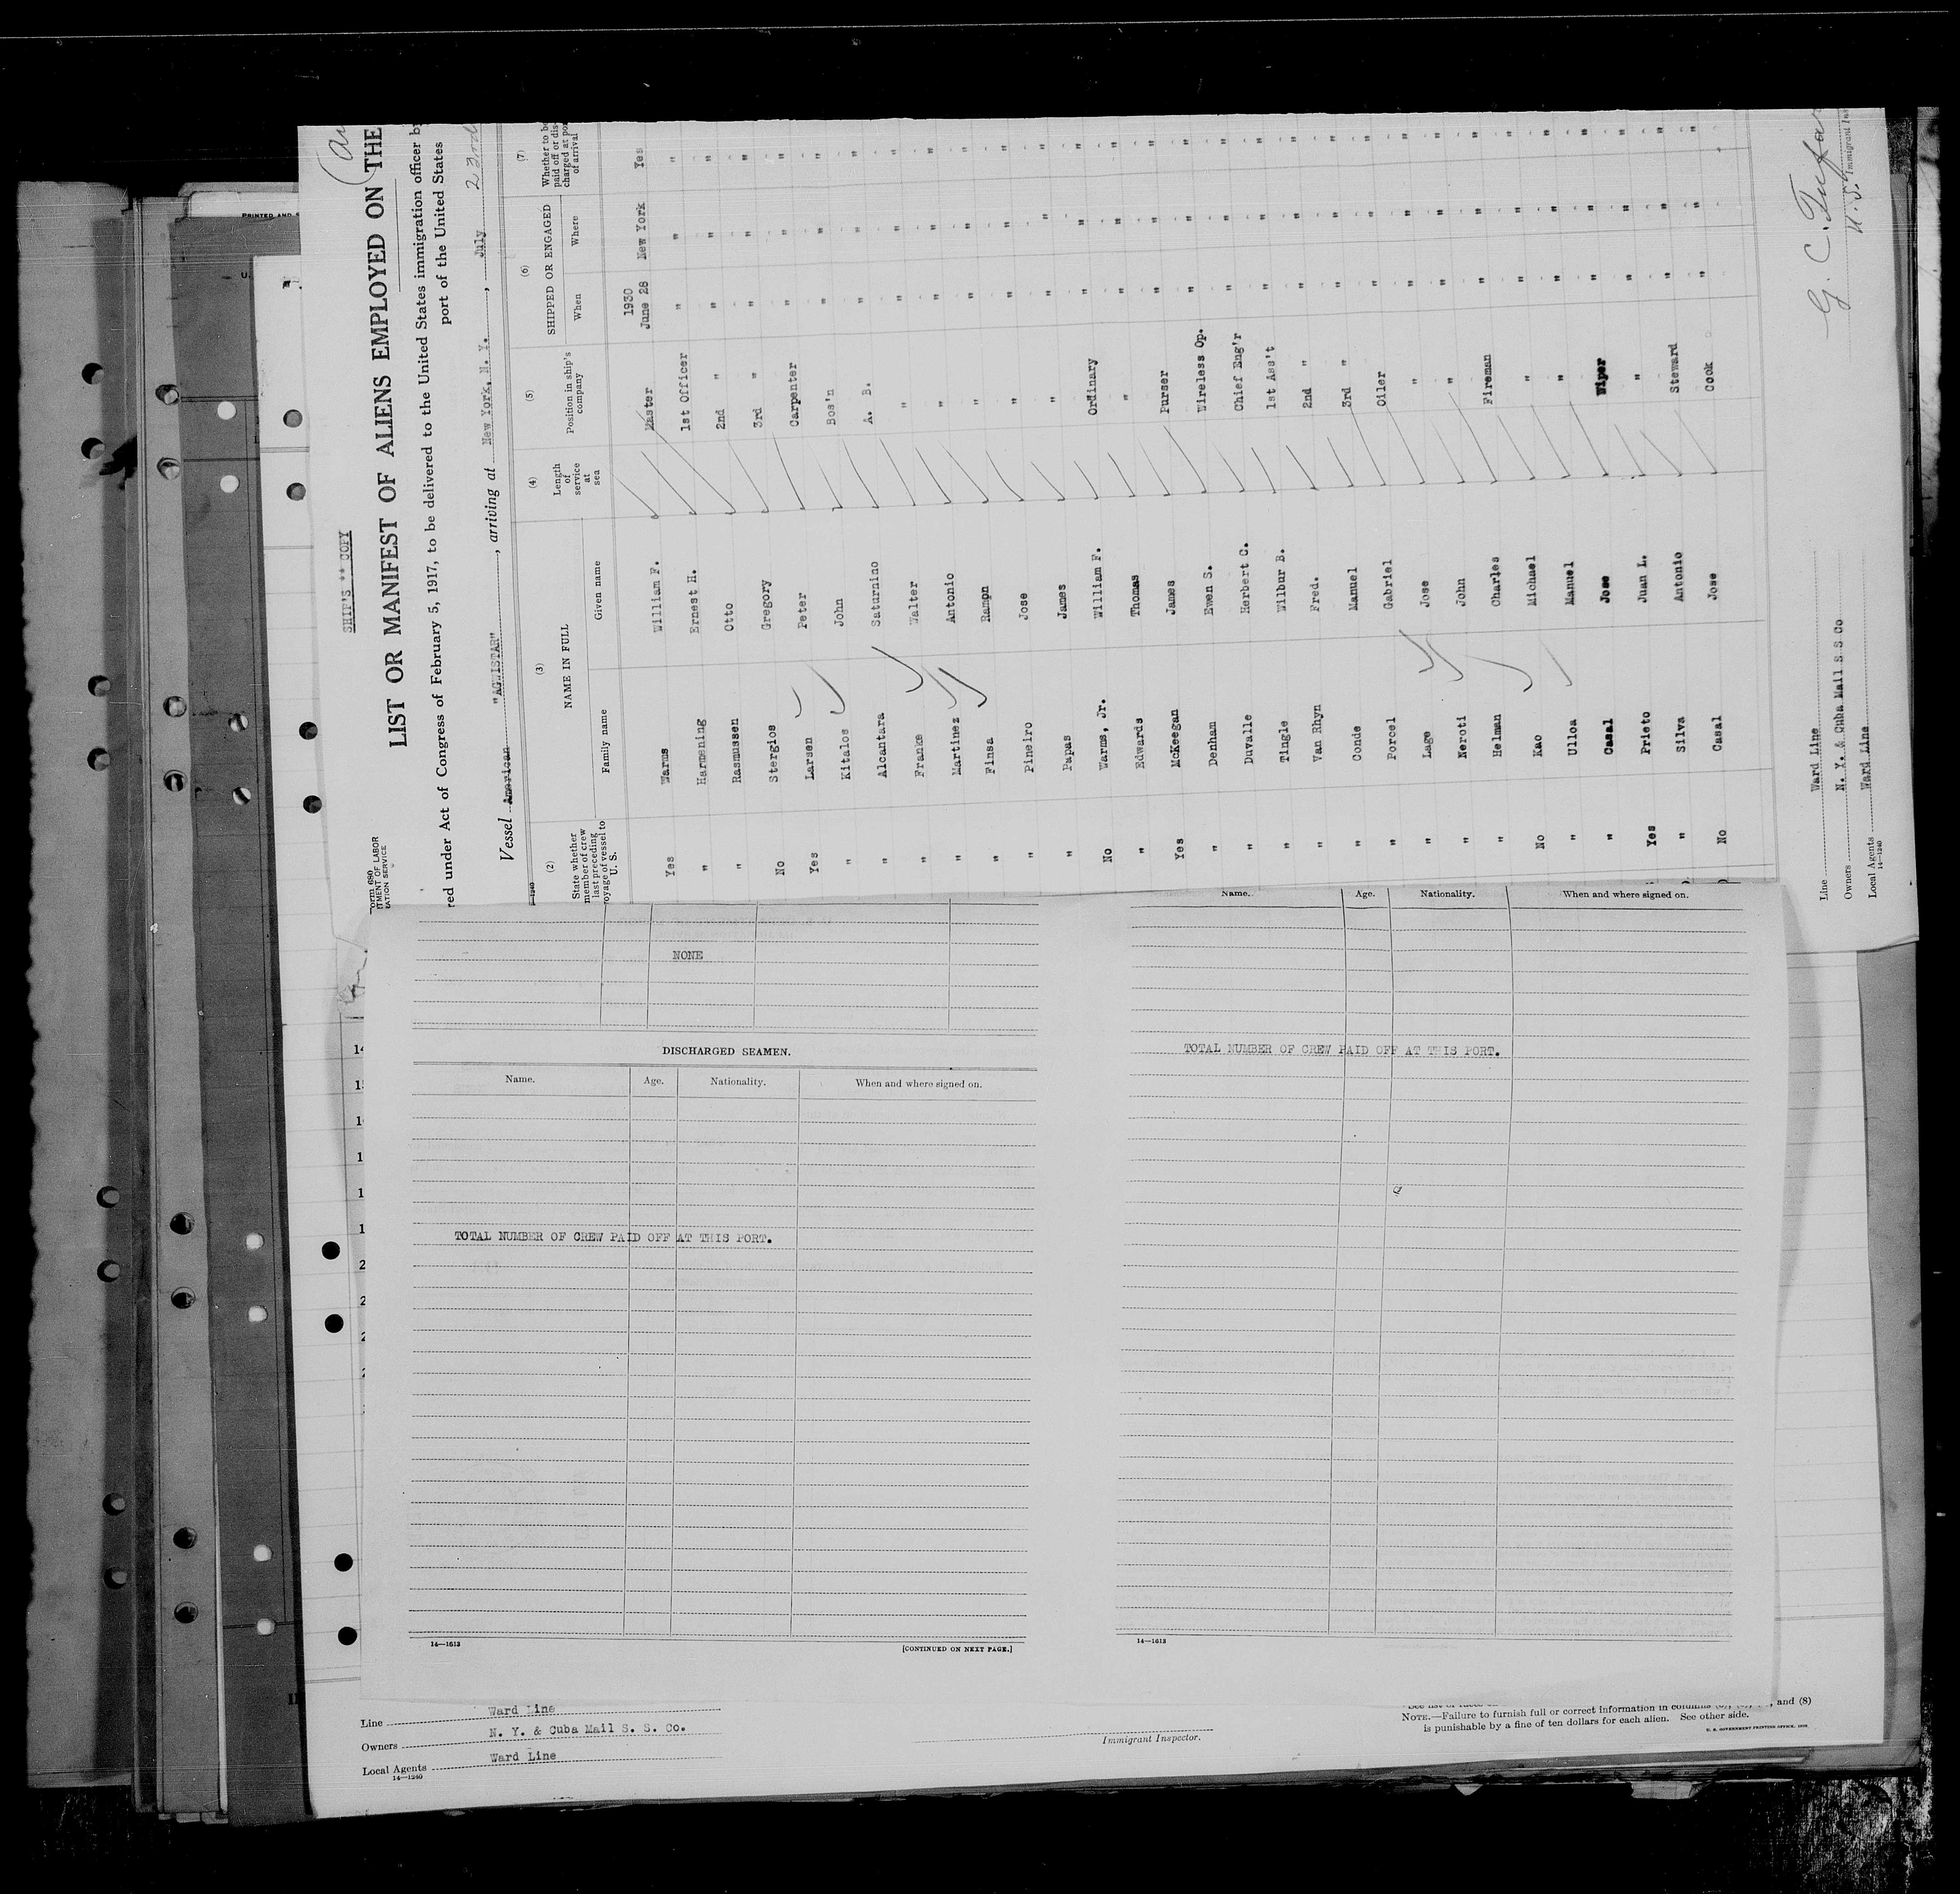 SHIP'S ** COPY
LIST OR MANIFEST OF ALIENS EMPLOYED ON THE
red under Act of Congress of February 5, 1917, to be delivered to the United States immigration officer by
port of the United States
Vessel American "AGWISTAR", arriving at New York, N. Y., July 23rd
(2) (3) (4) (5) (6) (7)
State whether member of crew last preceding voyage of vessel to U. S.
NAME IN FULL
Family name Given name
Length of service at sea
Position in ship's company
SHIPPED OR ENGAGED
When Where
Whether to be paid off or discharged at port of arrival
1930
Yes Warms William F. Master June 28 New York Yes
" Harmening Ernest H. 1st Officer " " "
" Rasmussen Otto 2nd " " " "
No Stergios Gregory 3rd " " " "
Yes Larsen Peter Carpenter " " "
" Kitalos John Bos'n " " "
" Alcantara Saturnino A. B. " " "
" Franke Walter " " " "
" Martinez Antonio " " " "
" Finsa Ramon " " " "
" Pineiro Jose " " " "
" Papas James " " " "
No Warms, Jr. William F. Ordinary " " "
" Edwards Thomas " " " "
Yes McKeegan James Purser " " "
" Denham Ewen S. Wireless Op. " " "
" Duvalle Herbert C. Chief Eng'r " " "
" Tingle Wilbur B. 1st Ass't " " "
" Van Rhyn Fred. 2nd " " " "
" Conde Manuel 3rd " " " "
" Porcel Gabriel Oiler " " "
" Lage Jose " " " "
" Neroti John " " " "
" Helman Charles Fireman " " "
No Kao Michael " " " "
" Ulloa Manuel " " " "
" Casal Jose Wiper " " "
Yes Prieto Juan L. " " " "
" Silva Antonio Steward " " "
No Casal Jose Cook " "
Line Ward Line
Owners N. Y. & Cuba Mail S S Co
Local Agents Ward Line
14—1240
NONE
DISCHARGED SEAMEN.
Name. Age. Nationality. When and where signed on.
TOTAL NUMBER OF CREW PAID OFF AT THIS PORT.
14—1613
[CONTINUED ON NEXT PAGE.]
Name. Age. Nationality. When and where signed on.
TOTAL NUMBER OF CREW PAID OFF AT THIS PORT.
14—1613
Line Ward Line
Owners N. Y. & Cuba Mail S. S. Co.
Local Agents Ward Line
14—1240
Immigrant Inspector.
and (8)
NOTE.—Failure to furnish full or correct information in columns
is punishable by a fine of ten dollars for each alien. See other side.
U. S. GOVERNMENT PRINTING OFFICE